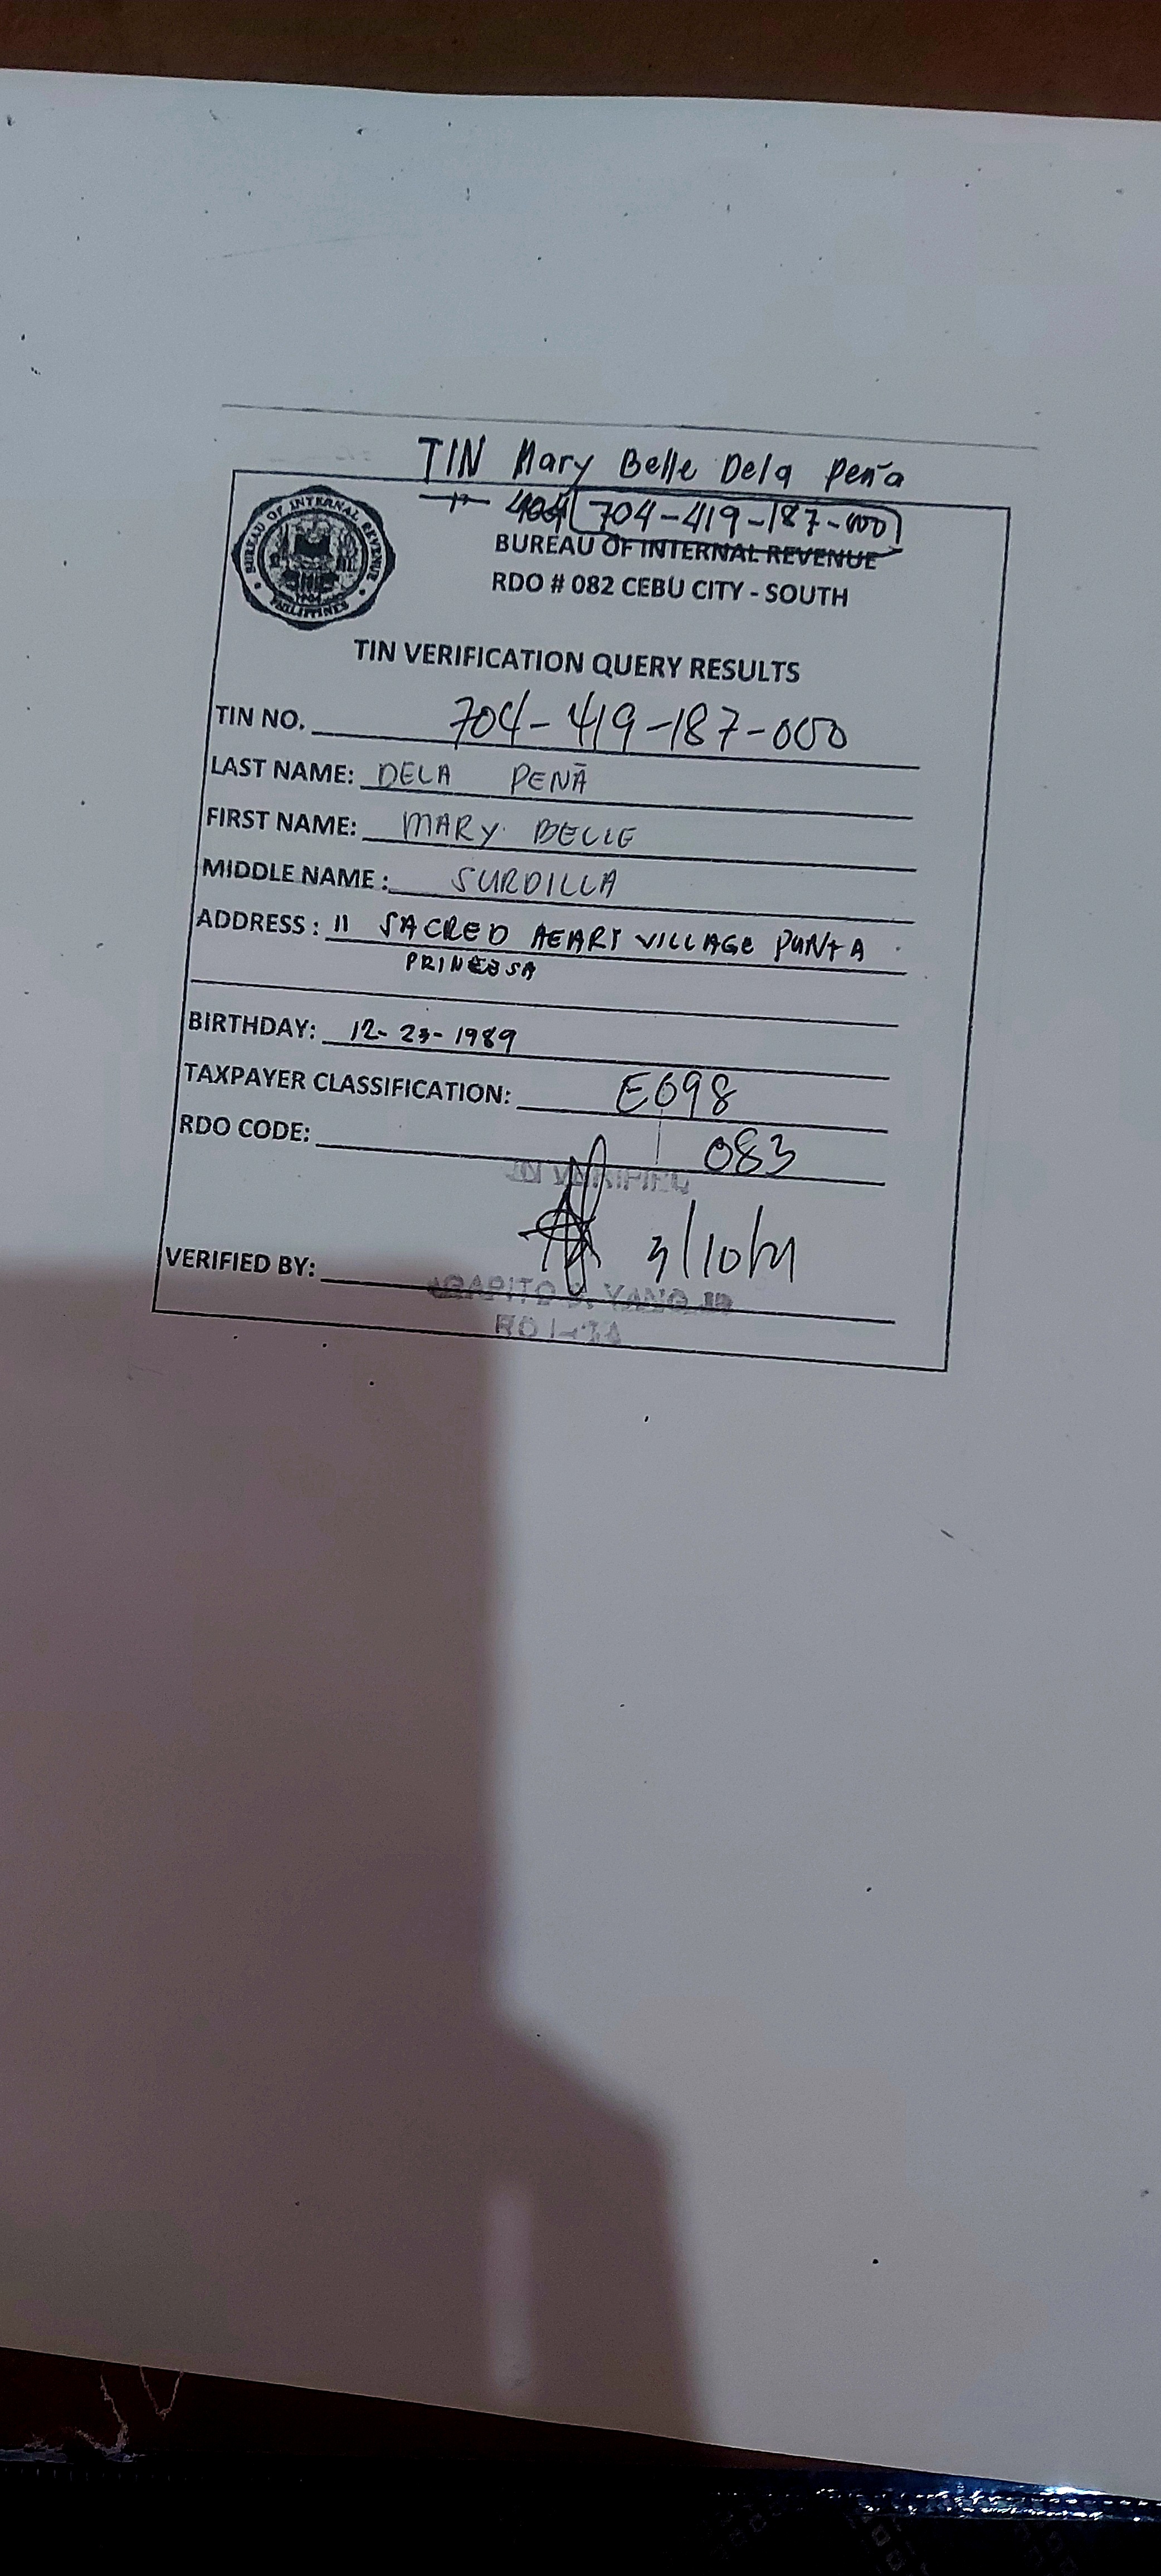 TIN Mary Belle Dela Peña
704-419-187-000
BUREAU OF INTERNAL REVENUE
RDO # 082 CEBU CITY - SOUTH
BUREAU OF INTERNAL REVENUE
PHILIPPINES
TIN VERIFICATION QUERY RESULTS
TIN NO. 704-419-187-000
LAST NAME: DELA PEÑA
FIRST NAME: MARY BELLE
MIDDLE NAME : SURDILLA
ADDRESS : 11 SACRED HEART VILLAGE PUNTA
PRINCESA
BIRTHDAY: 12-23-1989
TAXPAYER CLASSIFICATION: E098
RDO CODE: 083
VERIFIED
3/10/21
VERIFIED BY: